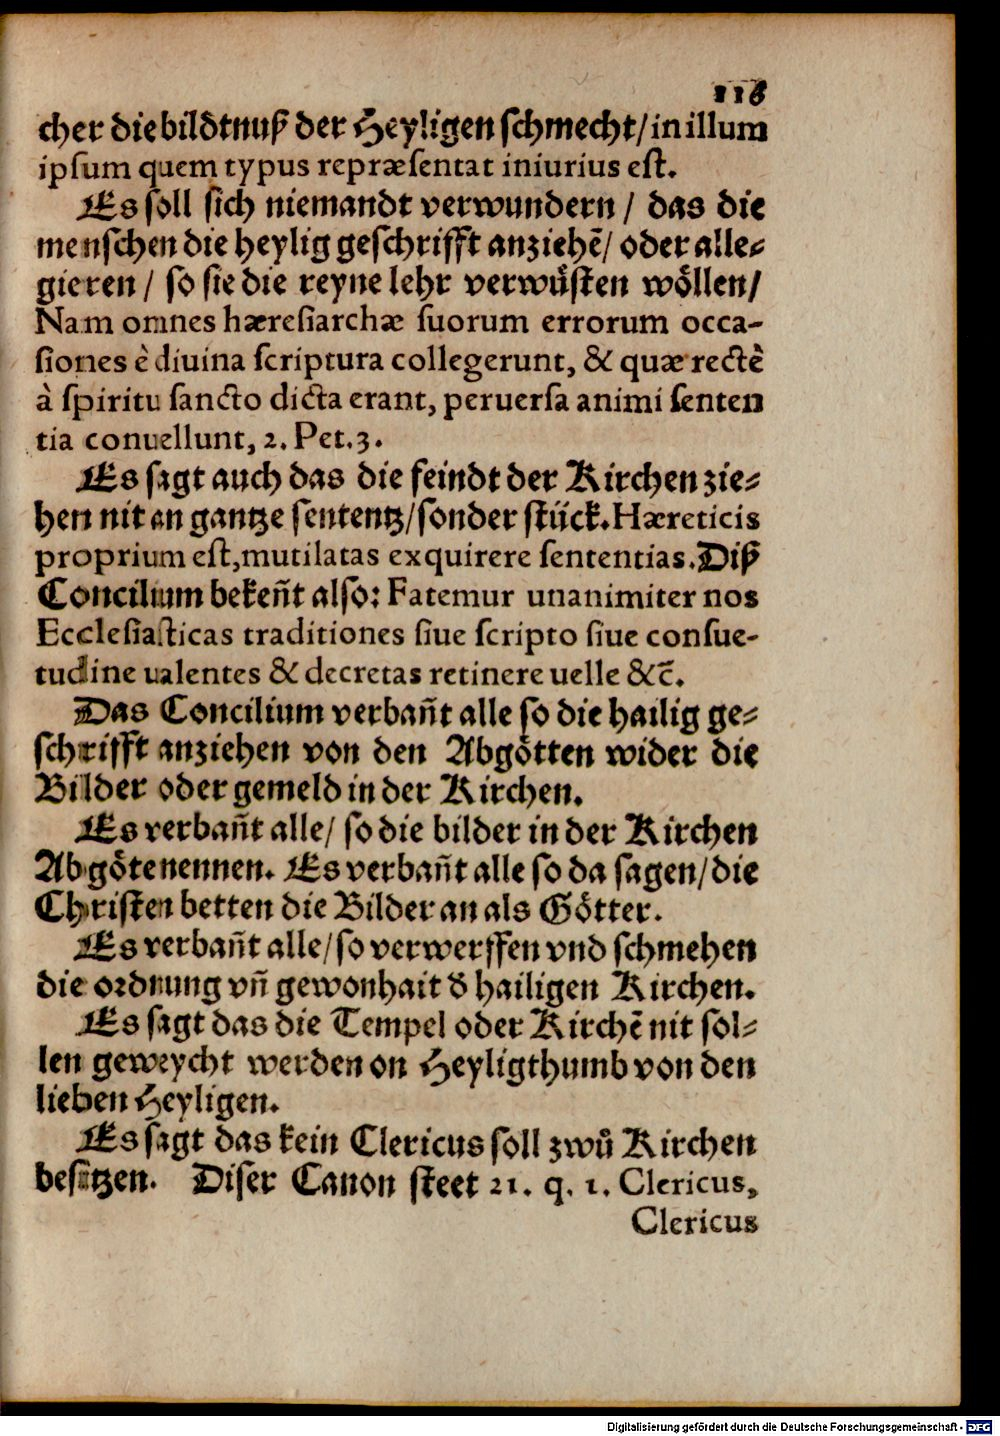 116
cher die bildtnuß der Heyligen schmecht/ in illum
ipsum quem typus repræsentat iniurius est.
Es soll sich niemandt verwundern / das die
menschen die heylig geschrifft anziehē/ oder alle⸗
gieren / so sie die reyne lehr verwůsten wöllen/
Nam omnes hæresiarchæ suorum errorum occa-
siones è diuina scriptura collegerunt, & quæ rectè
à spiritu sancto dicta erant, peruersa animi senten
tia conuellunt, 2. Pet. 3.
Es sagt auch das die feindt der Kirchen zie⸗
hen nit an gantze sententz/sonder stück. Hæreticis
proprium est, mutilatas exquirere sententias. Diß
Concilium bekeñt also: Fatemur unanimiter nos
Ecclesiasticas traditiones siue scripto siue consue-
tudine ualentes & decretas retinere uelle &c̄.
Das Concilium verbañt alle so die hailig ge⸗
schrifft anziehen von den Abgötten wider die
Bilder oder gemeld in der Kirchen.
Es verbañt alle/ so die bilder in der Kirchen
Abgöte nennen. Es verbañt alle so da sagen/ die
Christen betten die Bilder an als Götter.
Es verbañt alle/ so verwerffen vnd schmehen
die ordnung vñ gewonhait d' hailigen Kirchen.
Es sagt das die Tempel oder Kirchē nit sol⸗
len geweycht werden on Heyligthumb von den
lieben Heyligen.
Es sagt das kein Clericus soll zwů Kirchen
besitzen. Diser Canon steet 21. q. 1. Clericus,
Clericus
Digitalisierung gefördert durch die Deutsche Forschungsgemeinschaft - DFG